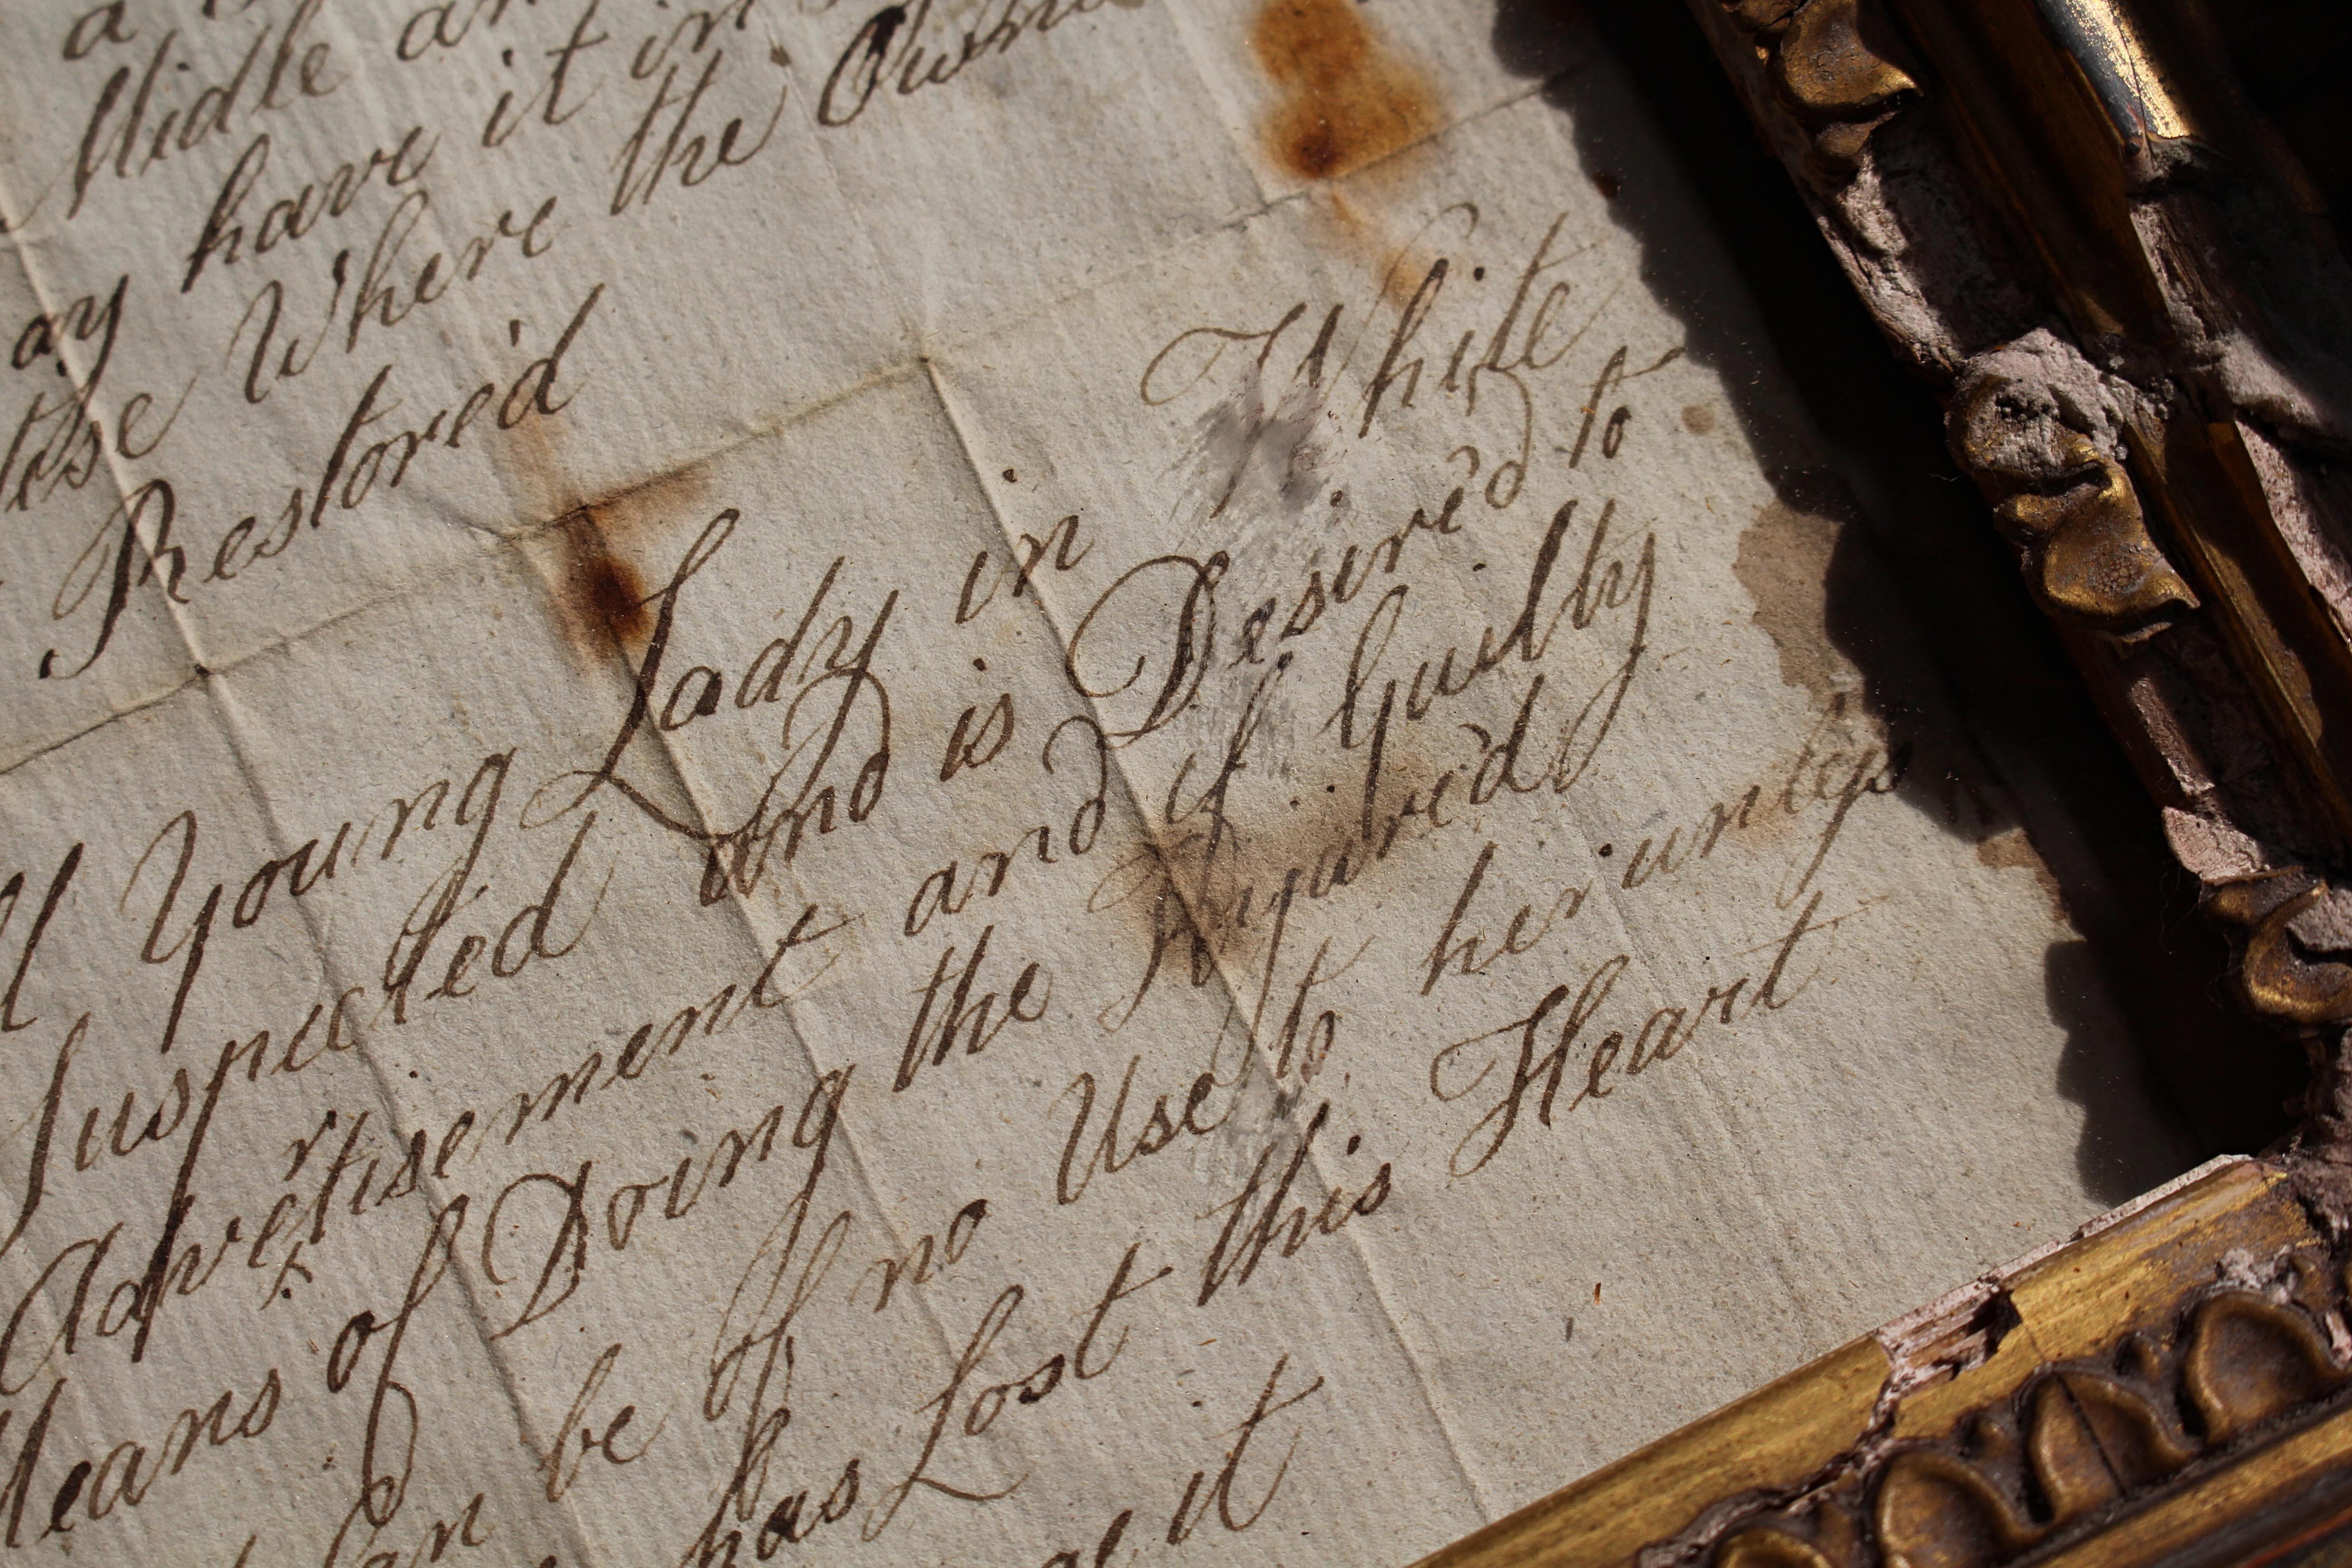 a
Midle an
ay have it in
Where the Owner
Restore'd
Young Lady in White
Suspected And is Desire'd to
Advertisement and if Guilty
Means of Doing the Injure'd
Can be of no Use to her unless
has Lost this Heart
it